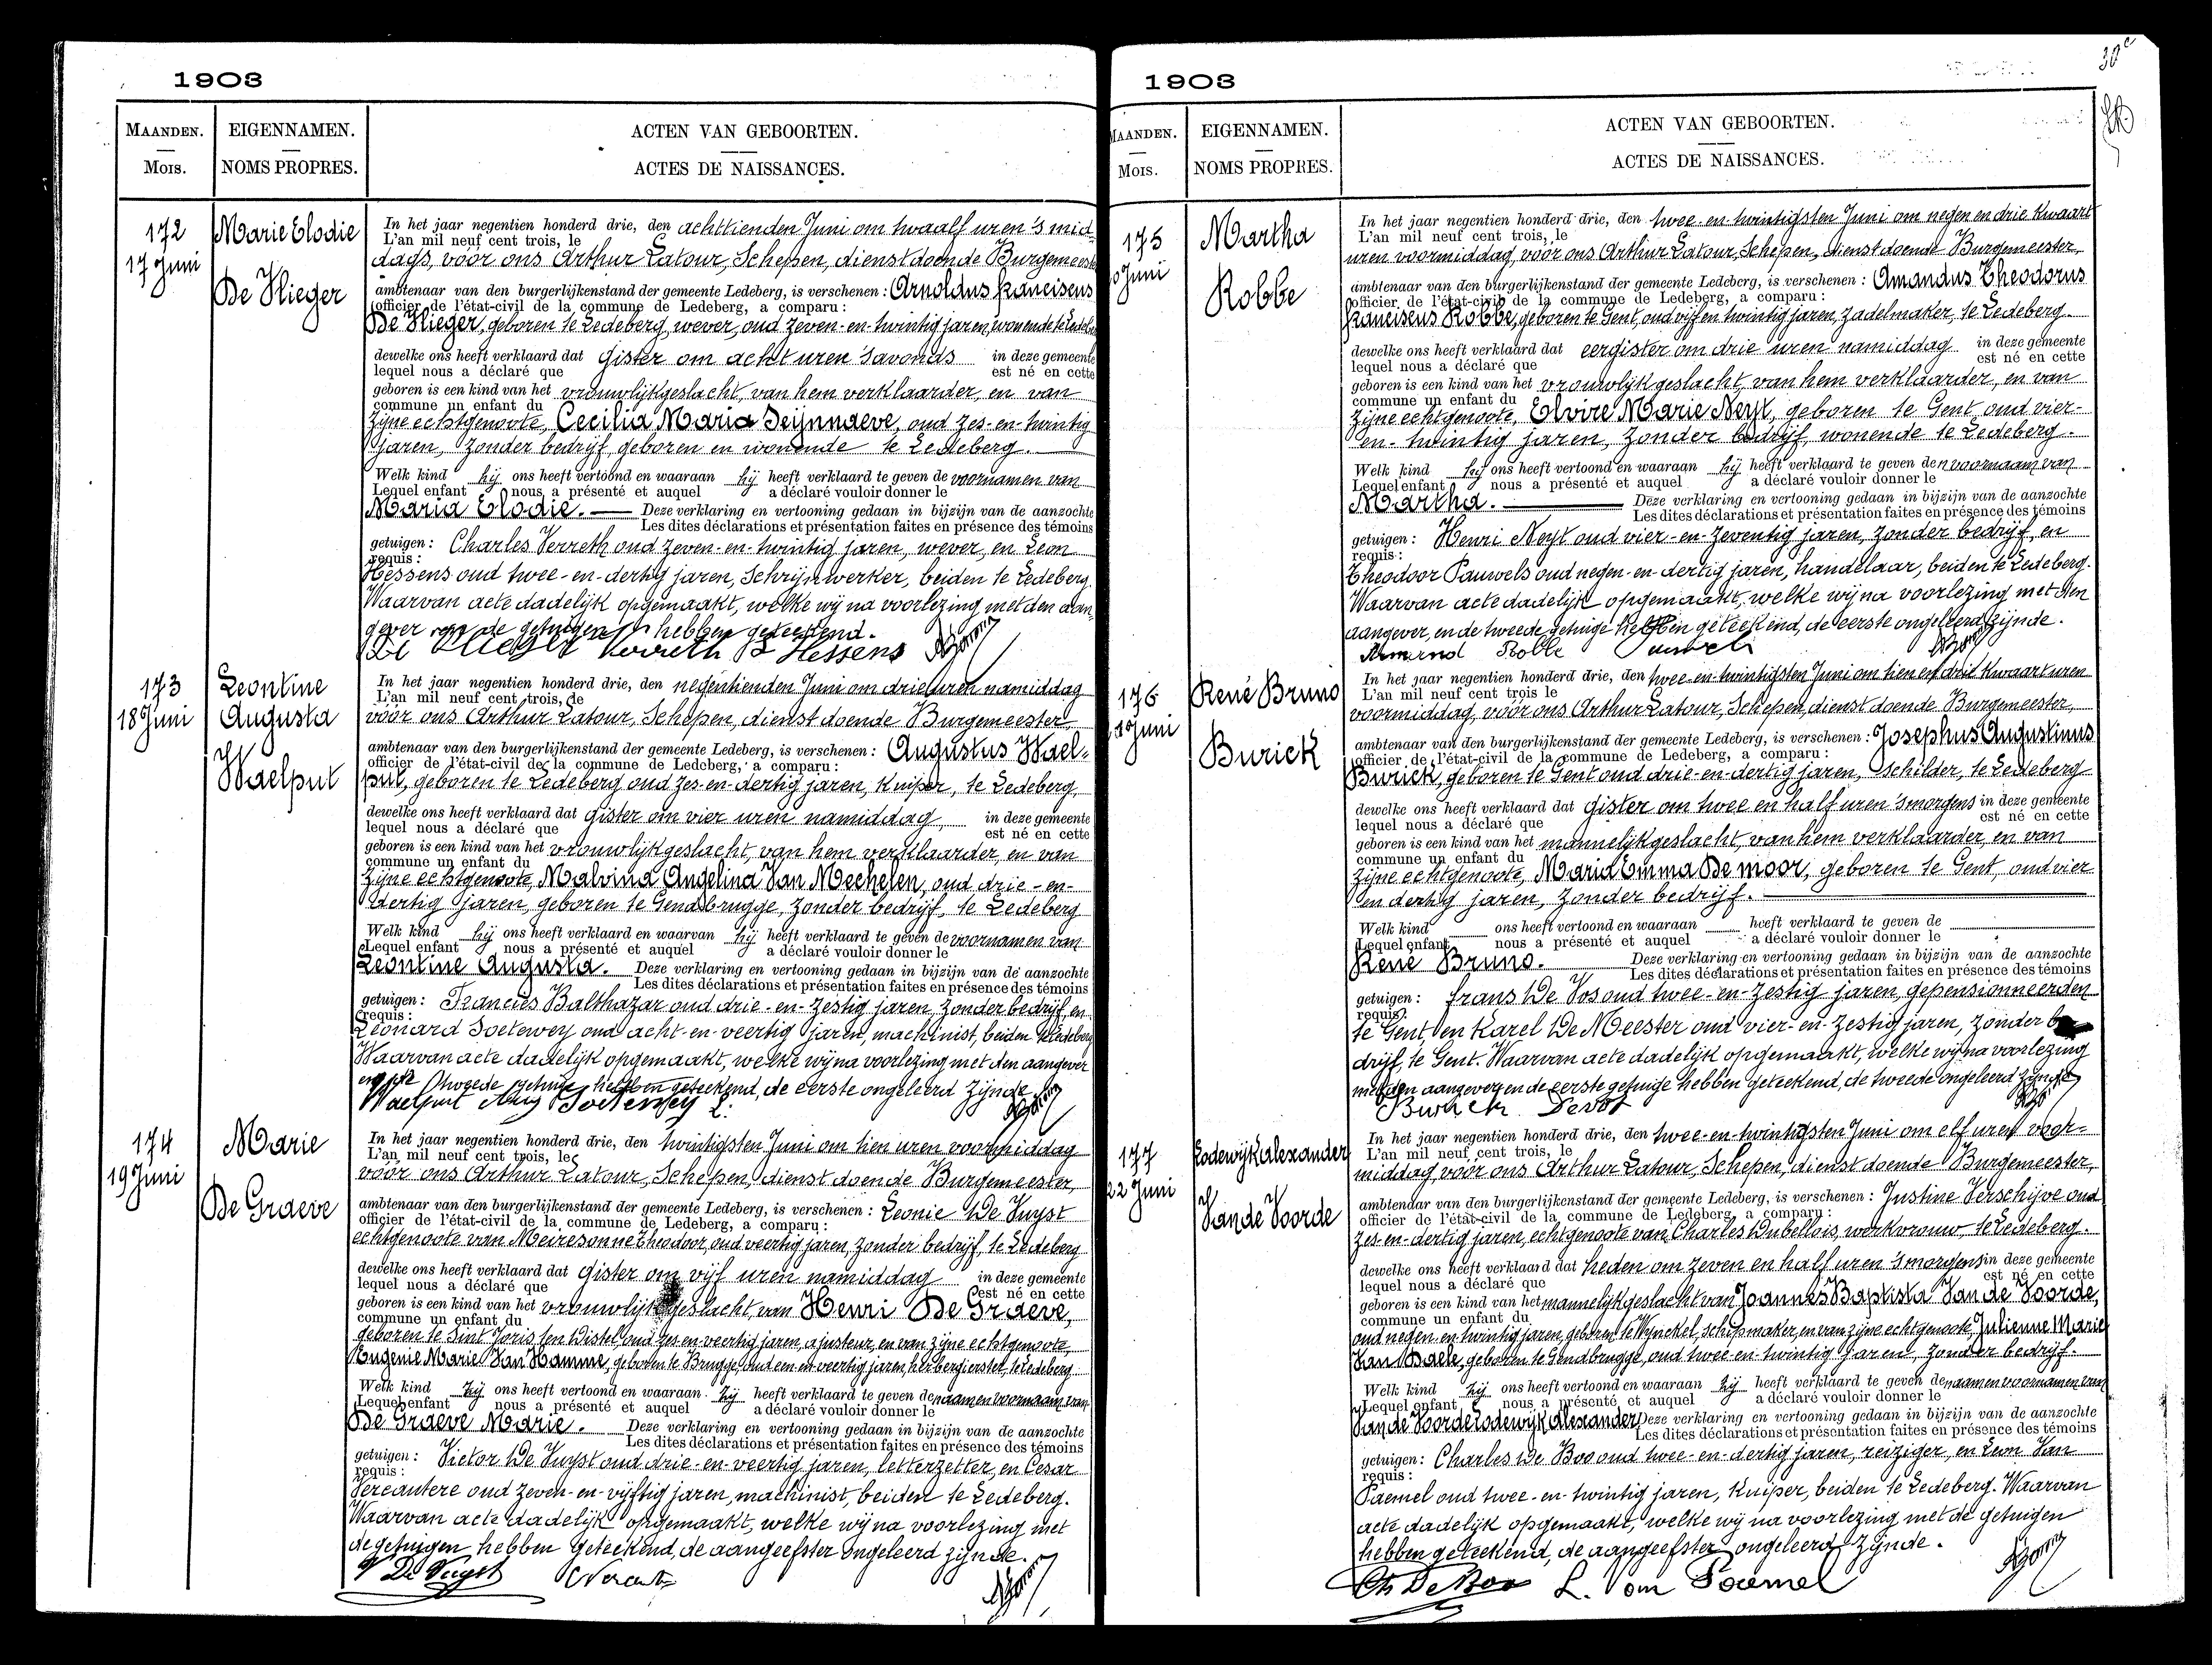 1903
MAANDEN.
MOIS.
EIGENNAMEN.
NOMS PROPRES.
ACTEN VAN GEBOORTEN.
ACTES DE NAISSANCES.
172
17 Juni
Marie Elodie
De Vlieger
In het jaar negentien honderd drie, den achttienden Juni om twaalf uren 's mid-
L'an mil neuf cent trois, le
dags, voor ons Arthur Latour, Schepen, dienstdoende Burgemeester
ambtenaar van den burgerlijkenstand der gemeente Ledeberg, is verschenen : Arnoldus Franciscus
officier de l'état-civil de la commune de Ledeberg, a comparu :
De Vlieger, geboren te Ledeberg, wever, oud zeven-en-twintig jaren, wonende te Ledeberg
dewelke ons heeft verklaard dat gister om acht uren 's avonds in deze gemeente
lequel nous a déclaré que est né en cette
geboren is een kind van het vrouwlijkgeslacht, van hem verklaarder, en van
commune un enfant du
zijne echtgenoote, Cecilia Maria Seijnnaeve, oud zes-en-twintig
jaren, zonder bedrijf, geboren en wonende te Ledeberg.
Welk kind hij ons heeft vertoond en waaraan hij heeft verklaard te geven de voornamen van
Lequel enfant nous a présenté et auquel a déclaré vouloir donner le
Maria Elodie. Deze verklaring en vertooning gedaan in bijzijn van de aanzochte
Les dites déclarations et présentation faites en présence des témoins
getuigen : Charles Verreth oud zeven-en-twintig jaren, wever, en Leon
requis :
Hessens oud twee-en-dertig jaren, Schrijnwerker, beiden te Ledeberg.
Waarvan acte dadelijk opgemaakt, welke wij na voorlezing met den aan-
gever en de getuigen hebben geteekend.
De Vlieger Verreth L Hessens
173
18 Juni
Leontine
Augusta
Waelput
In het jaar negentien honderd drie, den negentienden Juni om drie uren namiddag
L'an mil neuf cent trois, le
voor ons Arthur Latour, Schepen, dienst doende Burgemeester
ambtenaar van den burgerlijkenstand der gemeente Ledeberg, is verschenen : Augustus Wael-
officier de l'état-civil de la commune de Ledeberg, a comparu :
put, geboren te Ledeberg oud zes-en-dertig jaren, Kuiper, te Ledeberg,
dewelke ons heeft verklaard dat gister om vier uren namiddag, in deze gemeente
lequel nous a déclaré que est né en cette
geboren is een kind van het vrouwlijkgeslacht, van hem verklaarder, en van
commune un enfant du
zijne echtgenoote, Malvina Angelina Van Mechelen, oud drie-en-
dertig jaren, geboren te Gendbrugge, zonder bedrijf, te Ledeberg
Welk kind hij ons heeft verklaard en waarvan hij heeft verklaard te geven de voornamen van
Lequel enfant nous a présenté et auquel a déclaré vouloir donner le
Leontine Augusta. Deze verklaring en vertooning gedaan in bijzijn van de aanzochte
Les dites déclarations et présentation faites en présence des témoins
getuigen : Francies Balthazar oud drie-en-zestig jaren, zonder bedrijf, en
requis :
Leonard Soetewey oud acht-en-veertig jaren, machinist, beiden te Ledeberg
Waarvan acte dadelijk opgemaakt, welke wij na voorlezing met den aangever
en de tweede getuige hebben geteekend, de eerste ongeleerd zijnde.
Waelput Aug Soetewey L.
174
19 Juni
Marie
De Graeve
In het jaar negentien honderd drie, den twintigsten Juni om tien uren voormiddag
L'an mil neuf cent trois, le
voor ons Arthur Latour, Schepen, dienst doende Burgemeester,
ambtenaar van den burgerlijkenstand der gemeente Ledeberg, is verschenen : Leonie De Vuyst
officier de l'état-civil de la commune de Ledeberg, a comparu :
echtgenoote van Meiresonne Theodoor, oud veertig jaren, zonder bedrijf, te Ledeberg
dewelke ons heeft verklaard dat gister om vijf uren namiddag in deze gemeente
lequel nous a déclaré que est né en cette
geboren is een kind van het vrouwlijkgeslacht, van Henri De Graeve,
commune un enfant du
geboren te Sint Joris ten Distel, oud zes-en-veertig jaren, ajusteur, en van zijne echtgenoote,
Eugenie Marie Van Hamme, geboren te Brugge, oud een-en-veertig jaren, herbergierster, te Ledeberg.
Welk kind zij ons heeft vertoond en waaraan zij heeft verklaard te geven de naam en voornaam van
Lequel enfant nous a présenté et auquel a déclaré vouloir donner le
De Graeve Marie. Deze verklaring en vertooning gedaan in bijzijn van de aanzochte
Les dites déclarations et présentation faites en présence des témoins
getuigen : Victor De Vuyst oud drie-en-veertig jaren, letterzetter, en Cesar
requis :
Vercautere oud zeven-en-vijftig jaren, machinist, beiden te Ledeberg.
Waarvan acte dadelijk opgemaakt, welke wij na voorlezing met
de getuigen hebben geteekend, de aangeefster ongeleerd zijnde.
V De Vuyst
1903
30e
MAANDEN.
MOIS.
EIGENNAMEN.
NOMS PROPRES.
ACTEN VAN GEBOORTEN.
ACTES DE NAISSANCES.
175
0 Juni
Martha
Robbe
In het jaar negentien honderd drie, den twee-en-twintigsten Juni om negen en drie kwaart
L'an mil neuf cent trois, le
uren voormiddag, voor ons Arthur Latour, Schepen, dienst doende Burgemeester,
ambtenaar van den burgerlijkenstand der gemeente Ledeberg, is verschenen : Amandus Theodorus
officier de l'état-civil de la commune de Ledeberg, a comparu :
Franciscus Robbe, geboren te Gent, oud vijf en twintig jaren, zadelmaker, te Ledeberg
dewelke ons heeft verklaard dat eergister om drie uren namiddag in deze gemeente
lequel nous a déclaré que est né en cette
geboren is een kind van het vrouwlijk geslacht, van hem verklaarder, en van
commune un enfant du
zijne echtgenoote, Elvire Marie Neyt, geboren te Gent, oud vier-
en-twintig jaren, zonder bedrijf, wonende te Ledeberg.
Welk kind hij ons heeft vertoond en waaraan hij heeft verklaard te geven den voornaam van
Lequel enfant nous a présenté et auquel a déclaré vouloir donner le
Martha. Deze verklaring en vertooning gedaan in bijzijn van de aanzochte
Les dites déclarations et présentation faites en présence des témoins
getuigen : Henri Neyt oud vier-en-zeventig jaren, zonder bedrijf, en
requis :
Theodoor Pauwels oud negen-en-dertig jaren, handelaar, beiden te Ledeberg.
Waarvan acte dadelijk opgemaakt, welke wij na voorlezing met den
aangever, en de tweede getuige hebben geteekend, de eerste ongeleerd zijnde.
Armand Robbe Pauwels
176
Juni
René Bruno
Burick
In het jaar negentien honderd drie, den twee-en-twintigsten Juni om tien en drie kwaart uren
L'an mil neuf cent trois le
voormiddag, voor ons Arthur Latour, Schepen, dienst doende Burgemeester,
ambtenaar van den burgerlijkenstand der gemeente Ledeberg, is verschenen : Josephus Augustinus
officier de l'état-civil de la commune de Ledeberg, a comparu :
Burick, geboren te Gent oud drie-en-dertig jaren, schilder, te Ledeberg
dewelke ons heeft verklaard dat gister om twee en half uren 's morgens in deze gemeente
lequel nous a déclaré que est né en cette
geboren is een kind van het mannelijkgeslacht, van hem verklaarder, en van
commune un enfant du
zijne echtgenoote, Maria Emma De moor, geboren te Gent, oud vier
en dertig jaren, zonder bedrijf.
Welk kind ons heeft vertoond en waaraan heeft verklaard te geven de
Lequel enfant nous a présenté et auquel a déclaré vouloir donner le
René Bruno. Deze verklaring en vertooning gedaan in bijzijn van de aanzochte
Les dites déclarations et présentation faites en présence des témoins
getuigen : Frans De Vos oud twee-en-zestig jaren, gepensionneerden
requis :
te Gent, en Karel De Meester oud vier-en-zestig jaren, zonder be
drijf, te Gent. Waarvan acte dadelijk opgemaakt, welke wij na voorlezing
met den aangever en de eerste getuige hebben geteekend, de tweede ongeleerd zijnde
Burick Devos
177
22 Juni
Lodewijk Alexander
Van de Voorde
In het jaar negentien honderd drie, den twee-en-twintigsten Juni om elf uren voor-
L'an mil neuf cent trois, le
middag, voor ons Arthur Latour, Schepen, dienst doende Burgemeester,
ambtenaar van den burgerlijkenstand der gemeente Ledeberg, is verschenen : Justine Verschijve oud
officier de l'état-civil de la commune de Ledeberg, a comparu :
zes-en-dertig jaren, echtgenoote van Charles Dubellois, werkvrouw, te Ledeberg.
dewelke ons heeft verklaard dat heden om zeven en half uren 's morgens in deze gemeente
lequel nous a déclaré que est né en cette
geboren is een kind van het mannelijkgeslacht van Joannes Baptista Van de Voorde,
commune un enfant du
oud negen-en-twintig jaren, geboren te Wynckel, schipmaker, en van zijne echtgenoote, Julienne Marie
Van Daele, geboren te Gendbrugge, oud twee-en-twintig jaren, zonder bedrijf.
Welk kind zij ons heeft vertoond en waaraan zij heeft verklaard te geven de naam en voornamen van
Lequel enfant nous a présenté et auquel a déclaré vouloir donner le
Van de Voorde Lodewijk Alexander Deze verklaring en vertooning gedaan in bijzijn van de aanzochte
Les dites déclarations et présentation faites en présence des témoins
getuigen : Charles De Boo oud twee-en-dertig jaren, reiziger, en Leon Van
requis :
Paemel oud twee-en-twintig jaren, Kuiper, beiden te Ledeberg. Waarvan
acte dadelijk opgemaakt, welke wij na voorlezing met de getuigen
hebben geteekend, de aangeefster ongeleerd zijnde.
Ch De Boo L. Van Paemel